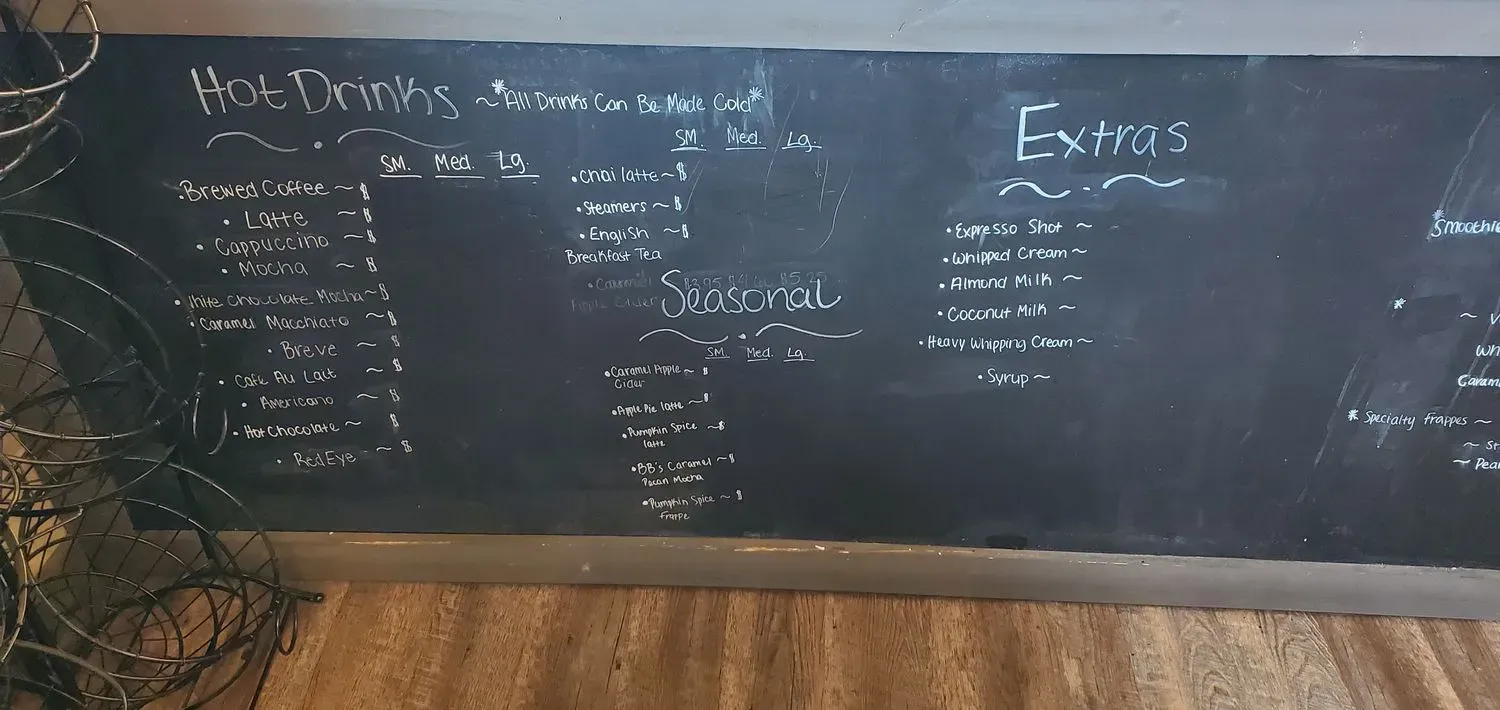 Hot Drinks ~ *All Drinks Can Be Made Cold*
SM. Med. Lg.
• Brewed Coffee ~ $
• Latte ~ $
• Cappuccino ~ $
• Mocha ~ $
• White Chocolate Mocha ~ $
• Caramel Macchiato ~ $
• Breve ~ $
• Cafe Au Lait ~ $
• Americano ~ $
• Hot Chocolate ~ $
• Red Eye ~ $
SM. Med. Lg.
• Chai latte ~ $
• Steamers ~ $
• English ~ $
Breakfast Tea
• Caramel
Apple Cider
Seasonal
SM. Med. Lg.
• Caramel Apple ~ $
Cider
• Apple Pie latte ~ $
• Pumpkin Spice ~ $
latte
• BB's Caramel ~ $
Pecan Mocha
• Pumpkin Spice ~ $
Frappe
Extras
• Expresso Shot ~
• Whipped Cream ~
• Almond Milk ~
• Coconut Milk ~
• Heavy Whipping Cream ~
• Syrup ~
*Smoothie
*
~ V
Wh
Caram
* Specialty Frappes ~
~ St
~ Pea